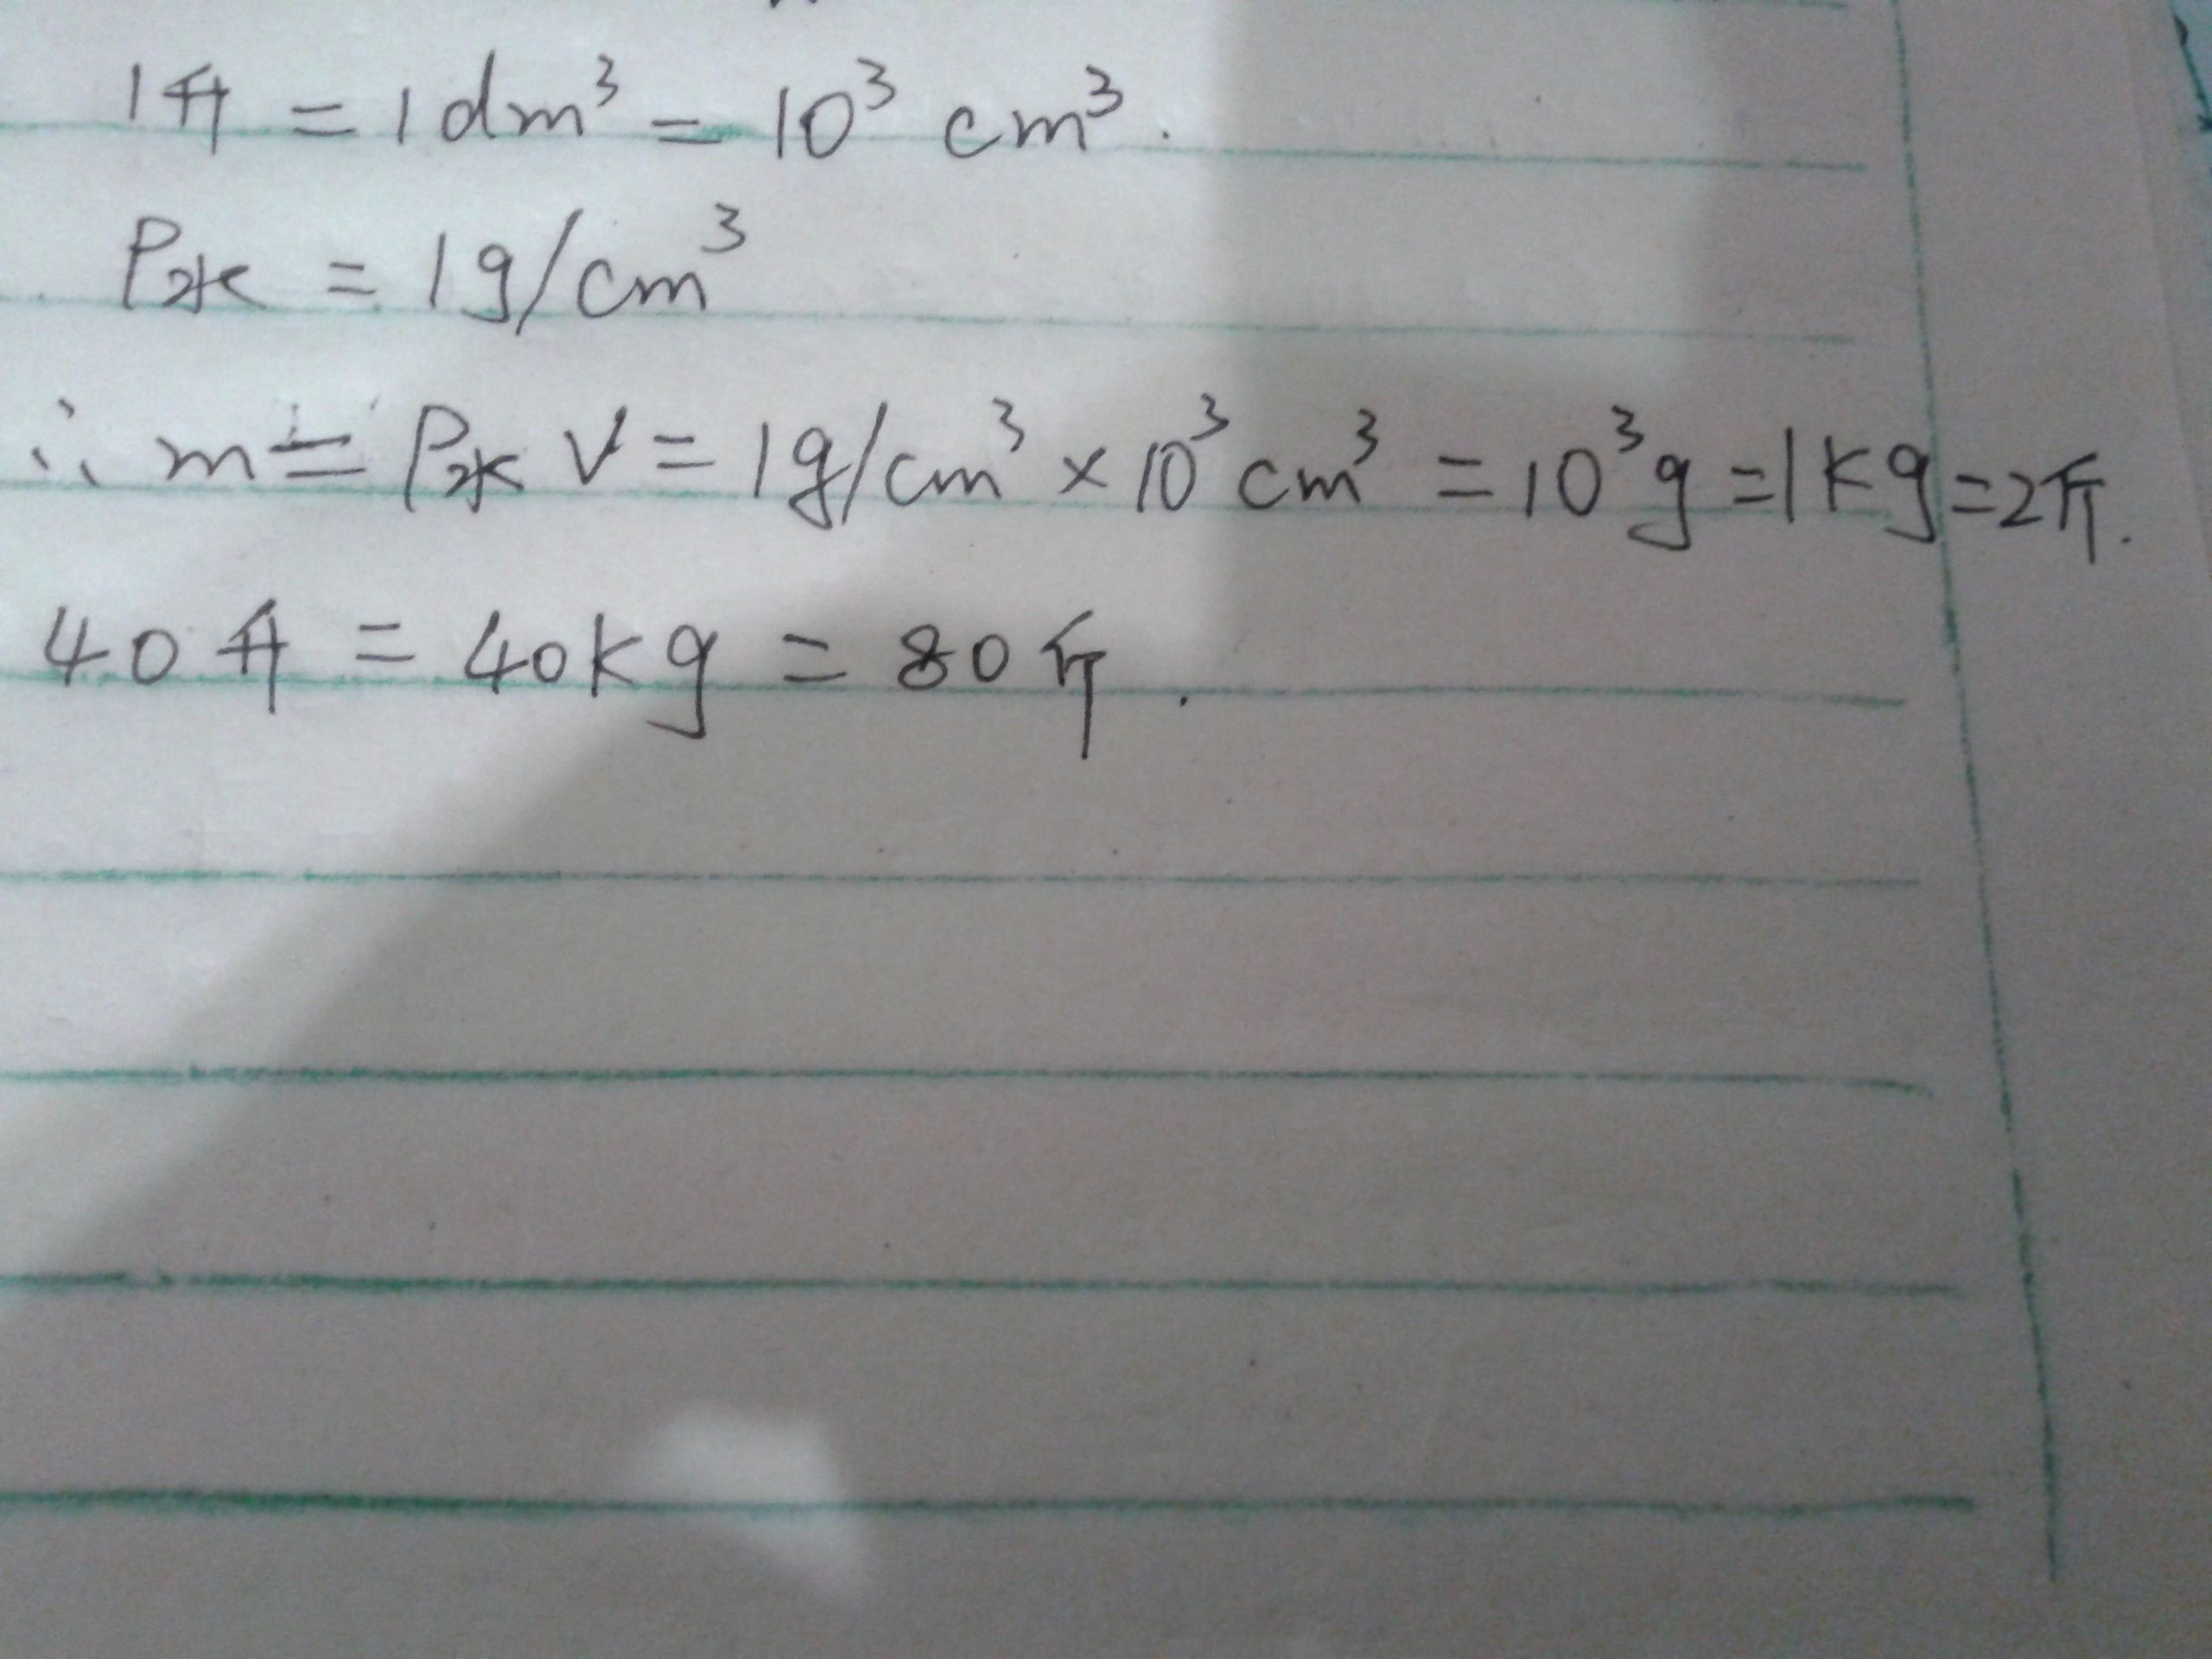 1升 = 1dm³ = 10³ cm³.
ρ水 = 1g/cm³
∴ m = ρ水 V = 1g/cm³ × 10³ cm³ = 10³ g = 1kg = 2斤.
40升 = 40kg = 80斤.